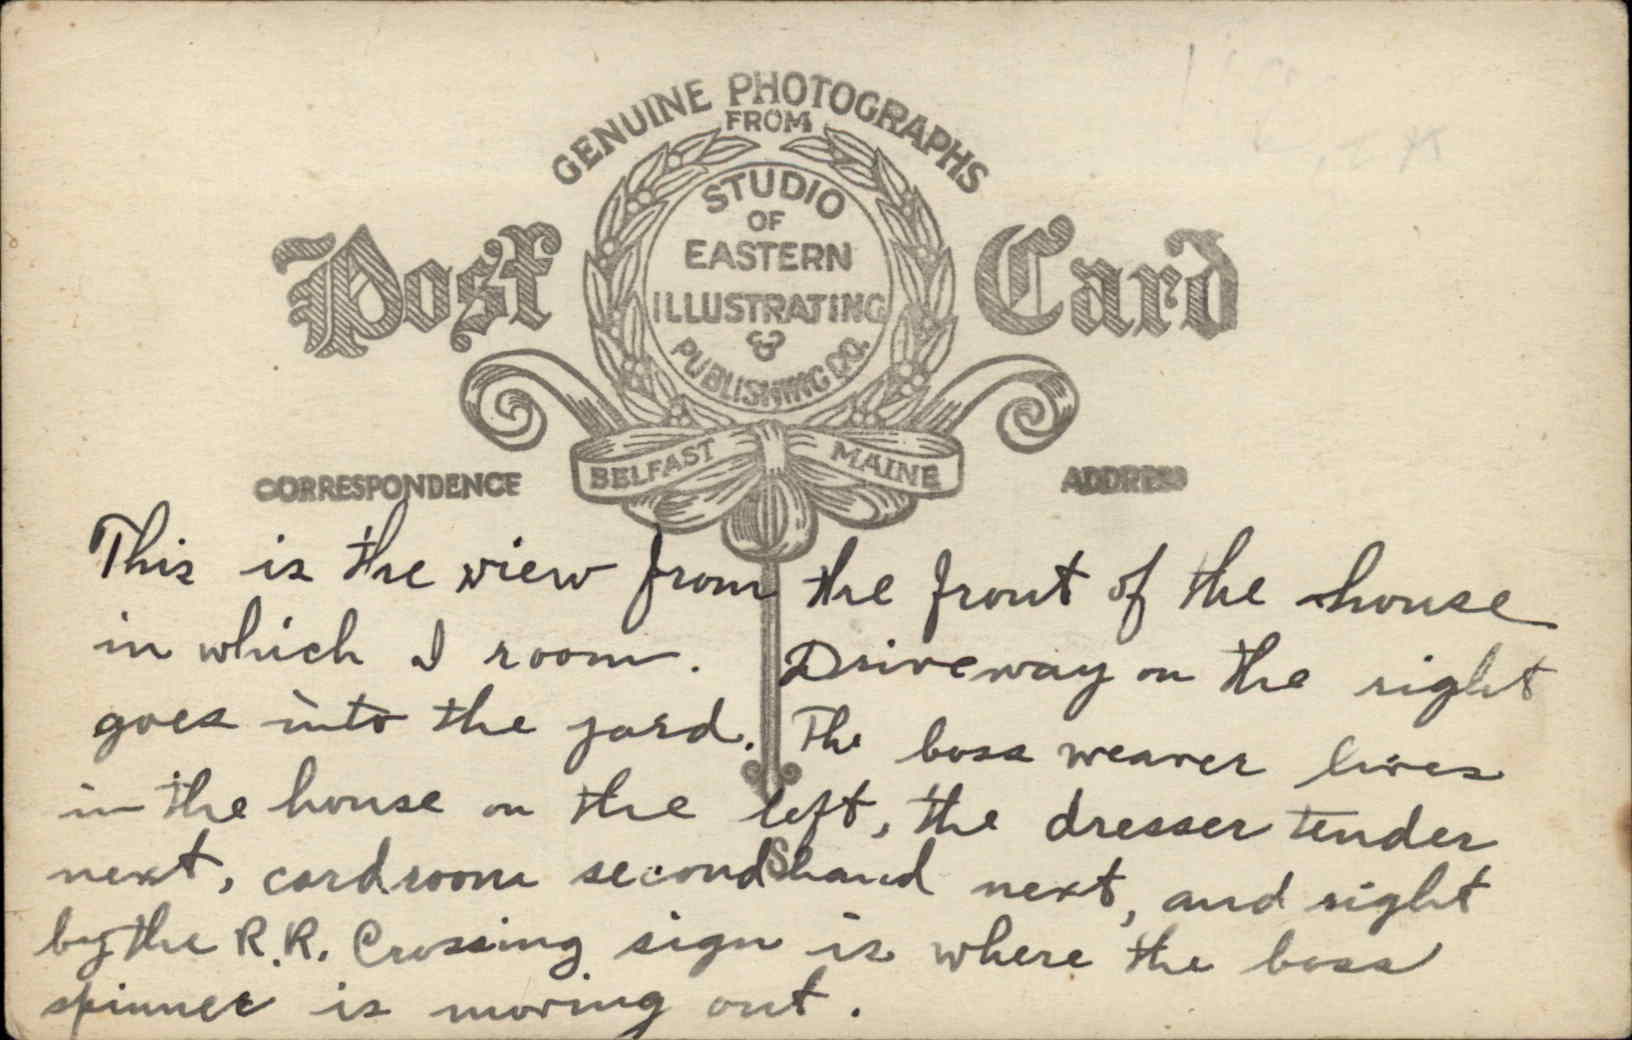 GENUINE PHOTOGRAPHS
FROM
STUDIO
OF
EASTERN
ILLUSTRATING
&
PUBLISHING CO.
Post Card
BELFAST MAINE
CORRESPONDENCE
ADDRESS
This is the view from the front of the house
in which I room. Driveway on the right
goes into the yard. The boss weaver lives
in the house on the left, the dresser tender
next, cardroom second hand next, and right
by the R.R. Crossing sign is where the boss
spinner is moving out.